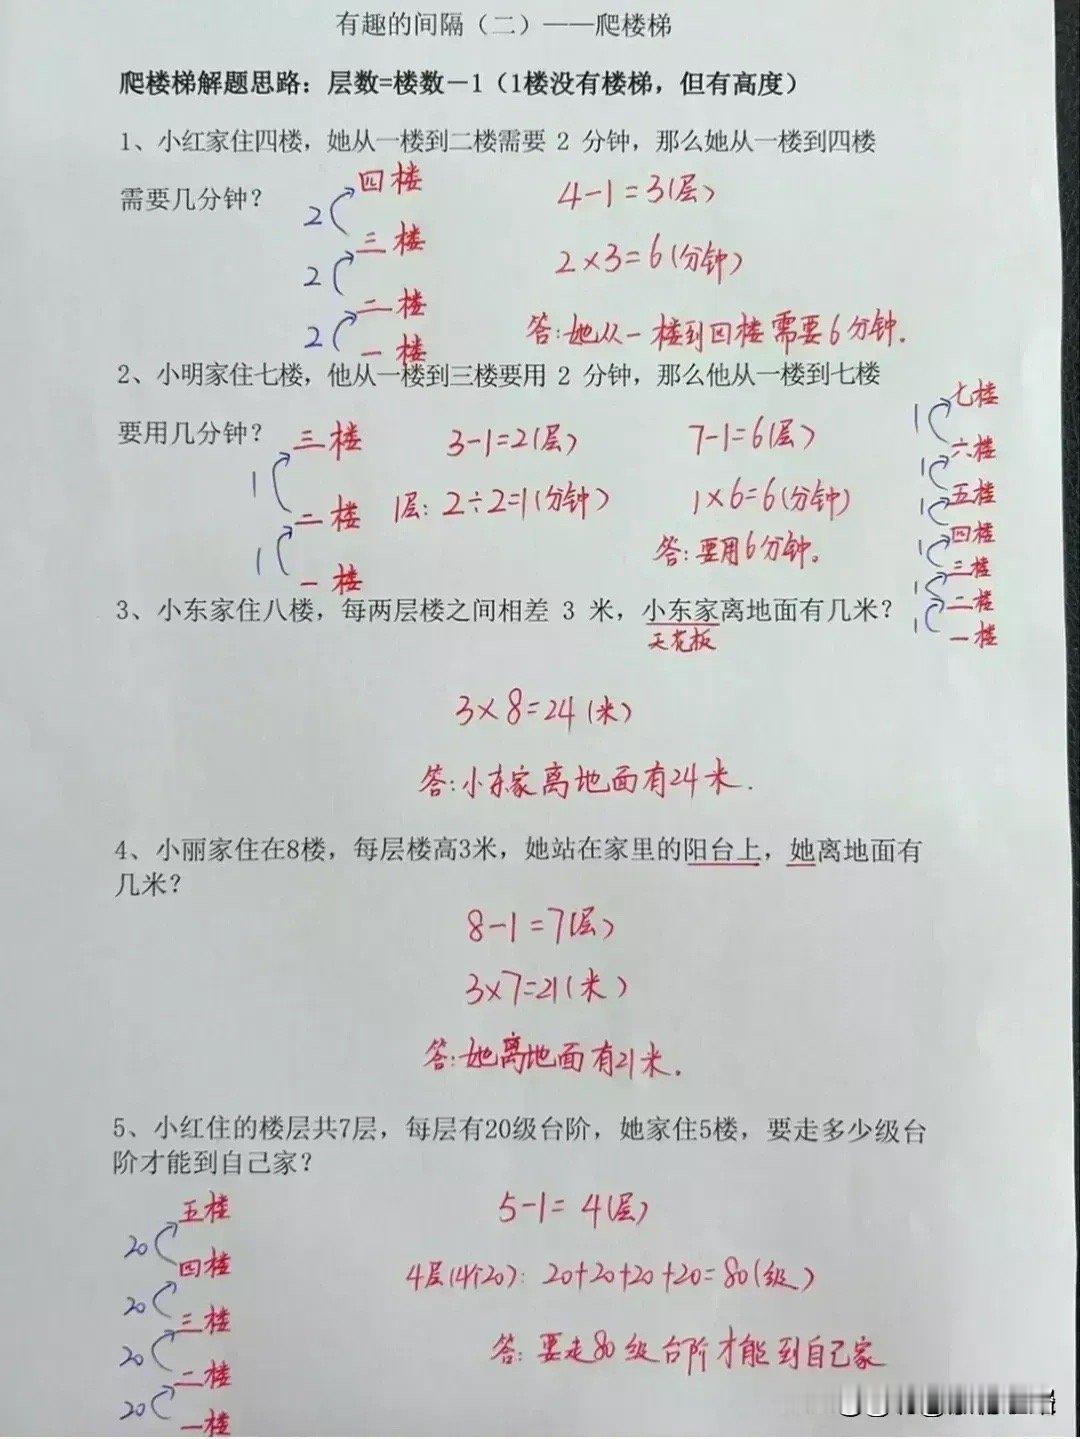 有趣的间隔（二）——爬楼梯
爬楼梯解题思路：层数=楼数－1（1楼没有楼梯，但有高度）
1、小红家住四楼，她从一楼到二楼需要 2 分钟，那么她从一楼到四楼
需要几分钟？
四楼
2
三楼
2
二楼
2
一楼
4－1＝3(层)
2×3＝6(分钟)
答：她从一楼到四楼需要6分钟.
2、小明家住七楼，他从一楼到三楼要用 2 分钟，那么他从一楼到七楼
要用几分钟？
三楼
1
二楼
1
一楼
3－1＝2(层)
1层：2÷2＝1(分钟)
7－1＝6(层)
1×6＝6(分钟)
答：要用6分钟。
七楼
1
六楼
1
五楼
1
四楼
1
三楼
1
二楼
1
一楼
3、小东家住八楼，每两层楼之间相差 3 米，小东家离地面有几米？
天花板
3×8＝24(米)
答：小东家离地面有24米.
4、小丽家住在8楼，每层楼高3米，她站在家里的阳台上，她离地面有
几米？
8－1＝7(层)
3×7＝21(米)
答：她离地面有21米.
5、小红住的楼层共7层，每层有20级台阶，她家住5楼，要走多少级台
阶才能到自己家？
五楼
20
四楼
20
三楼
20
二楼
20
一楼
5－1＝4(层)
4层(4个20)：20+20+20+20＝80(级)
答：要走80级台阶才能到自己家